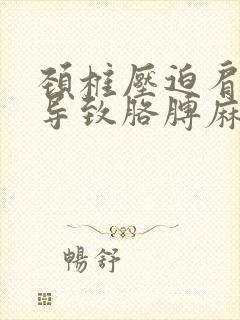 頚柱壓迫肩
导致胳膊麻
暢舒